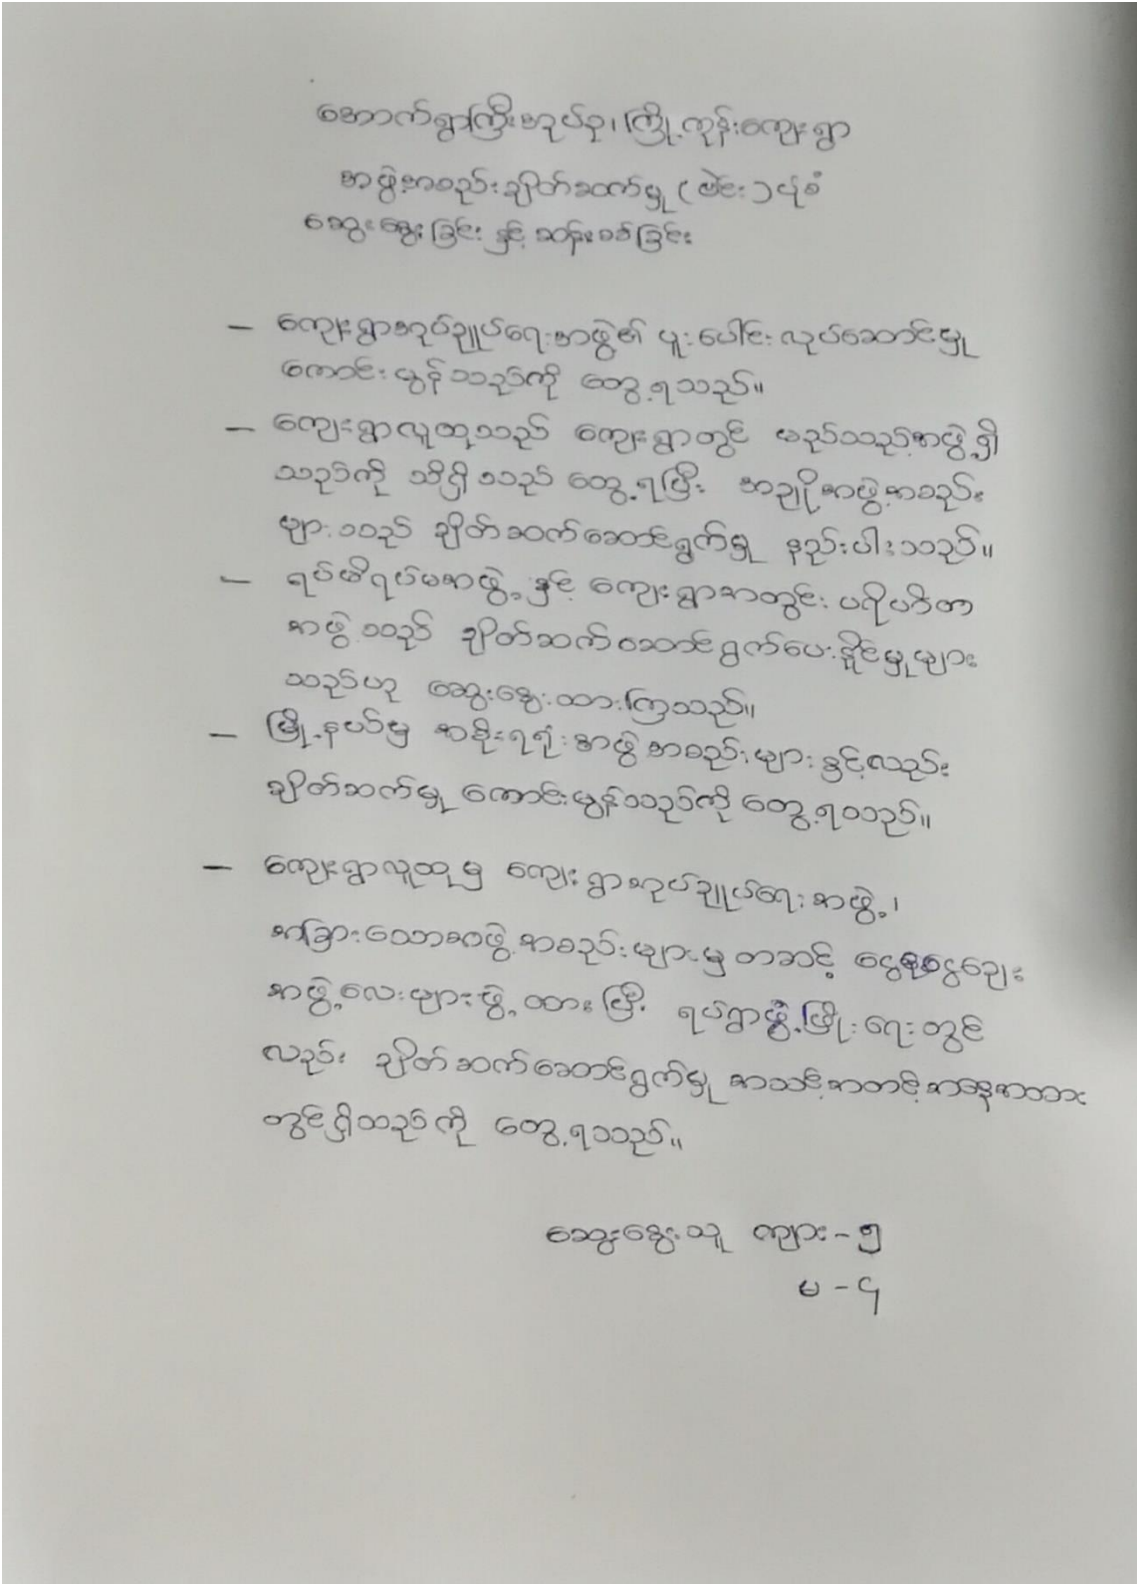 အောက်ရွာကြီးအုပ်စု၊ ကြို့ကုန်းကျေးရွာ
အဖွဲ့အစည်းချိတ်ဆက်မှု (ဗဲင်း) ပုံစံ
ဆွေးနွေးခြင်း နှင့် ဆန်းစစ်ခြင်း
– ကျေးရွာအုပ်ချုပ်ရေးအဖွဲ့၏ ပူးပေါင်းလုပ်ဆောင်မှု
ကောင်းမွန်သည်ကို တွေ့ရသည်။
– ကျေးရွာလူထုသည် ကျေးရွာတွင် မည်သည့်အဖွဲ့ရှိ
သည်ကို သိရှိသည် တွေ့ရပြီး အချို့အဖွဲ့အစည်း
များသည် ချိတ်ဆက်ဆောင်ရွက်မှု နည်းပါးသည်။
– ရပ်မိရပ်ဖအဖွဲ့နှင့် ကျေးရွာအတွင်း ပရဟိတ
အဖွဲ့သည် ချိတ်ဆက်ဆောင်ရွက်ပေးနိုင်မှုများ
သည်ဟု ဆွေးနွေးထားကြသည်။
– မြို့နယ်မှ အစိုးရရုံးအဖွဲ့အစည်းများနှင့်လည်း
ချိတ်ဆက်မှု ကောင်းမွန်သည်ကို တွေ့ရသည်။
– ကျေးရွာလူထုမှ ကျေးရွာအုပ်ချုပ်ရေးအဖွဲ့၊
အခြားသောအဖွဲ့အစည်းများမှ တဆင့် ငွေစုငွေချေး
အဖွဲ့လေးများဖွဲ့ထားပြီး ရပ်ရွာဖွံ့ဖြိုးရေးတွင်
လည်း ချိတ်ဆက်ဆောင်ရွက်မှု အသင့်အတင့်အနေအထား
တွင်ရှိသည်ကို တွေ့ရသည်။
ဆွေးနွေးသူ ကျား - ၅
မ - ၄